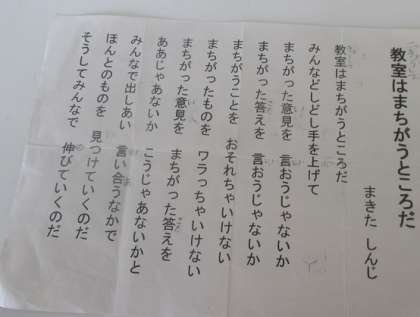 教室はまちがうところだ
まきた しんじ
教室はまちがうところだ
みんなどしどし手を上げて
まちがった意見を 言おうじゃないか
まちがった答えを 言おうじゃないか
まちがうことを おそれちゃいけない
まちがったものを ワラっちゃいけない
まちがった意見を まちがった答えを
ああじゃあないか こうじゃあないかと
みんなで出しあい 言い合うなかで
ほんとのものを 見つけていくのだ
そうしてみんなで 伸びていくのだ